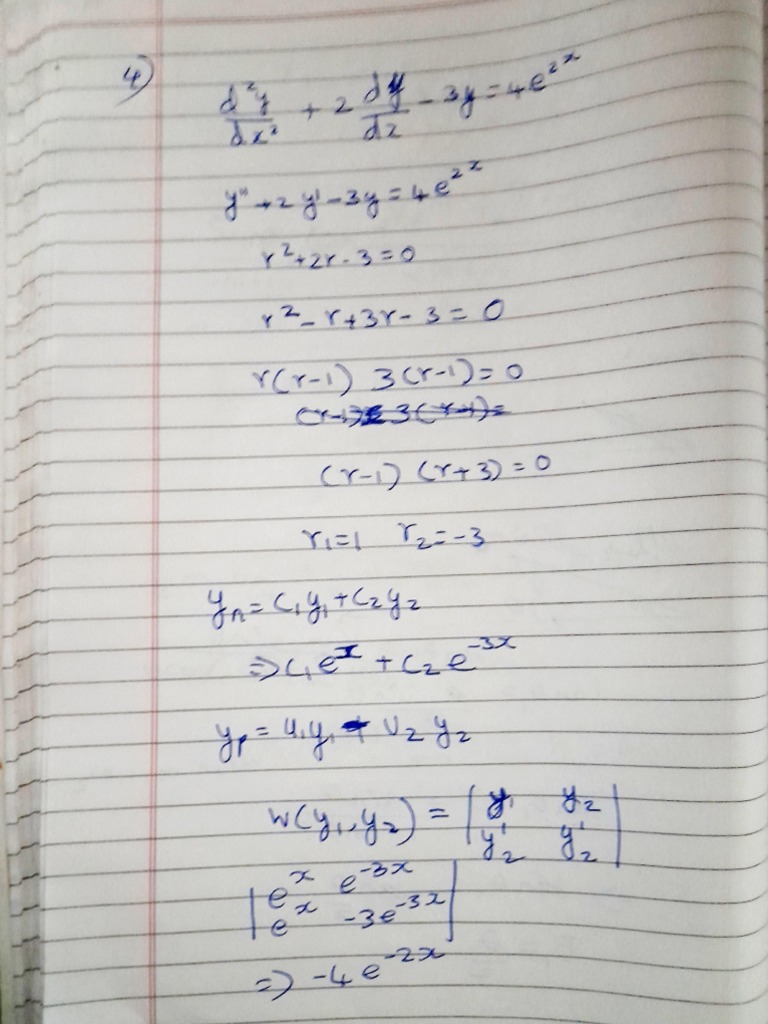 4)
d²y/dx² + 2 dy/dx - 3y = 4e^2x
y" + 2y' - 3y = 4e^2x
r² + 2r - 3 = 0
r² - r + 3r - 3 = 0
r(r-1) 3(r-1) = 0
(r-1) (r+3) = 0
r₁ = 1 r₂ = -3
yₕ = C₁y₁ + C₂y₂
⇒ C₁e^x + C₂e^-3x
yₚ = u₁y₁ + v₂y₂
W(y₁, y₂) = | y₁ y₂ |
| y'₂ y'₂ |
| e^x e^-3x |
| e^x -3e^-3x |
⇒ -4e^-2x